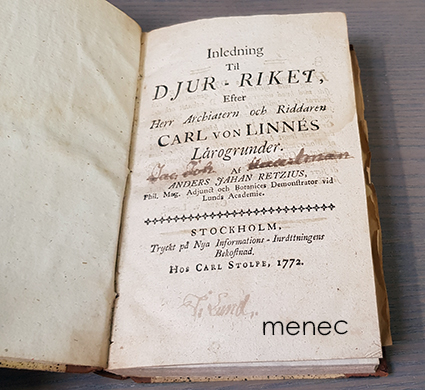 Inledning
Til
DJUR-RIKET,
Efter
Herr Archiatern och Riddaren
CARL VON LINNÉS
Lärogrunder.
Af
ANDERS JAHAN RETZIUS,
Phil. Mag. Adjunct och Botanices Demonstrator vid
Lunds Academie.
STOCKHOLM,
Tryckt på Nya Informations-Inrättningens
Bekostnad.
HOS CARL STOLPE, 1772.
Lund.
menec